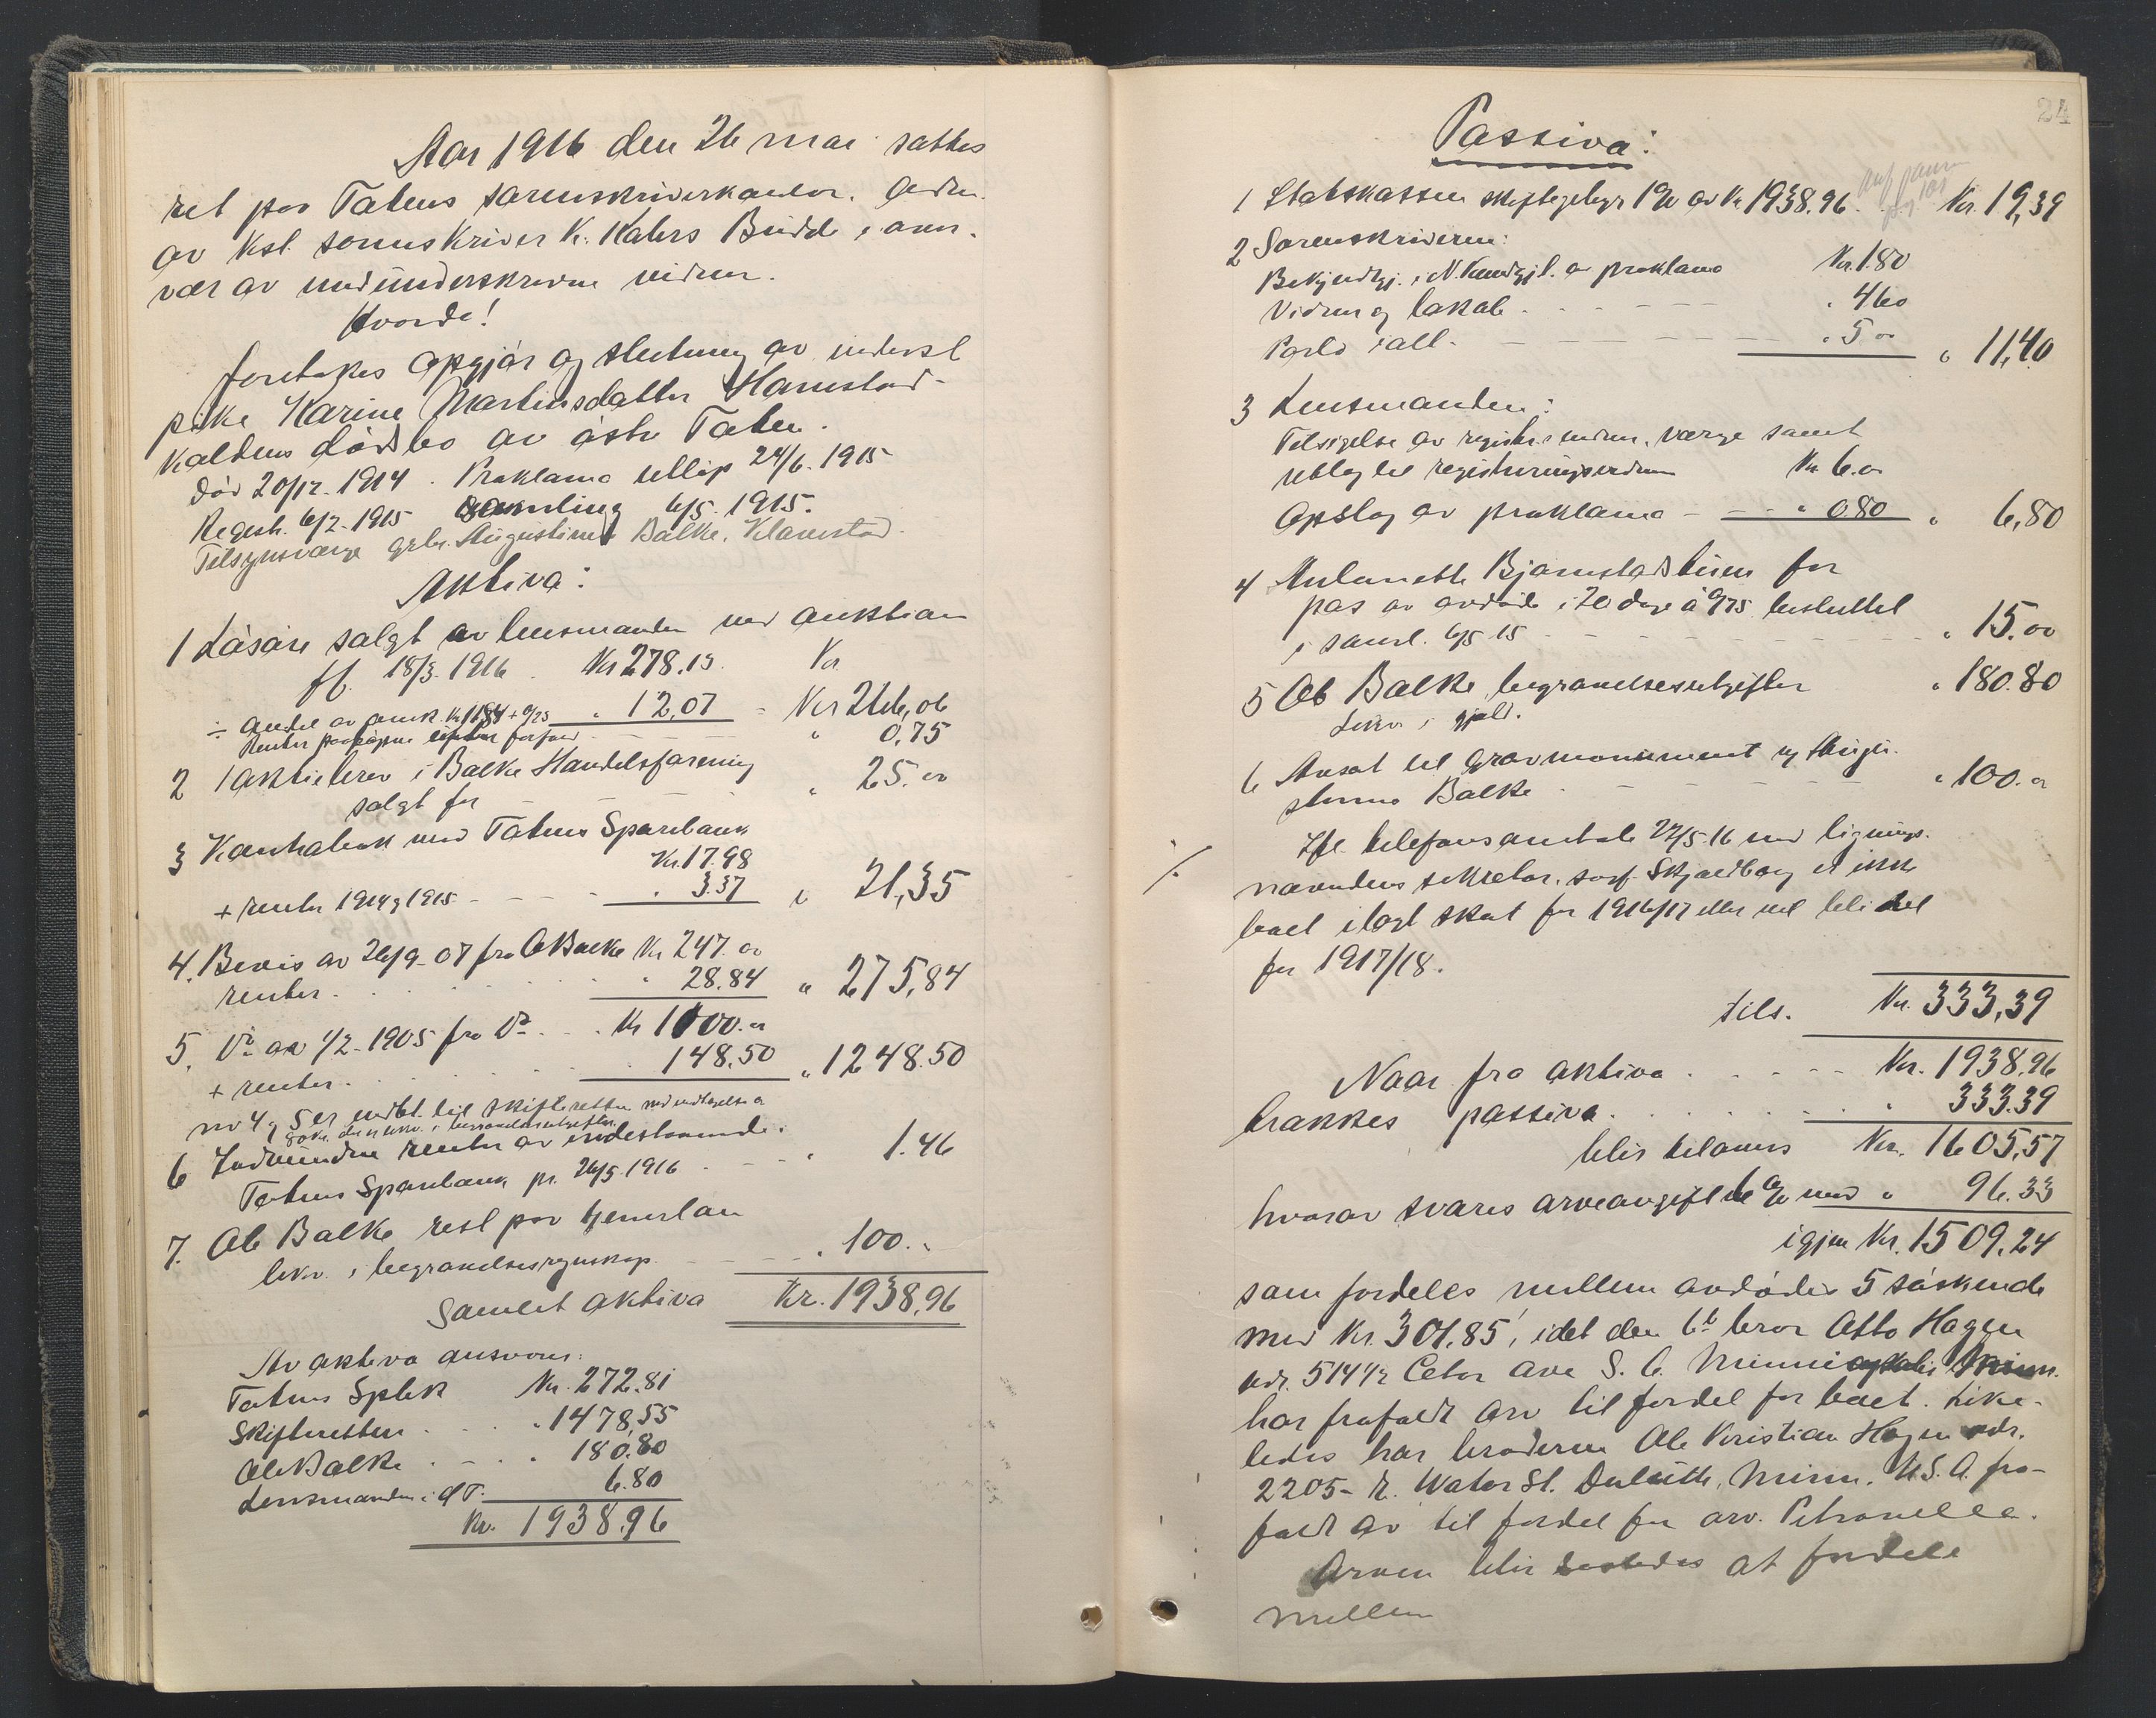 Aar 1916 den 26 mai sattes
ret paa Totens sorenskriverkontor. Adm.
av Kst. sorenskriver K. Kahrs Budde, i over-
vær av medunderskrevne vidner.
Hvorda!
foretokes opgjør og slutning av indersl
pike Karine Martinsdatter Harnstad-
kaldens dødsbo av østre Toten.
død 20/12-1914. Proklama utløp 24/6. 1915
Registr. 6/2-1915 Samling 6/5. 1915.
Tilsynsværge grbr. Augustinus Balke, Klaverstad.
Aktiva:
1 Løsøre solgt av lensmanden ved auktion
ff. 18/3. 1916 Kr 278.13. Kr.
÷ andel av omk. Kr 11.84 + 0/23 " 12,07 = Kr 266,06
Renter forfald " 0,75
2 1 aktiebrev i Balke Handelsforening
solgt for - - - " 25.00
3 Kontrabok med Totens Sparebank
Kr. 17.98
+ renter 1914 og 1915 - - - " 3.37 " 21,35
4. Bevis av 26/9-07 fra O Balke Kr 247.00
renter . . . " 28.84 " 275,84
5. Do av 1/2-1905 fra Do . . . Kr 1100.00
+ renter . . . 148.50 " 1248.50
no 4 og 5 er indbt. til skifteretten med undtagelse av
80 kr. der er likv. i begravelsesutgifter.
6 Indvundne renter av indestaaende i
Totens Sparebank pr. 26/5. 1916 . - - " 1.46
7. Ole Balke rest paa tjenerløn
likv. i begravelsesregnskap. - - - " 100.00
Samlet aktiva Kr. 1938,96
Av aktiva ansvares:
Totens Spbk Kr. 272.81
Skifteretten . . . " 1478,55
Ole Balke . - . " 180.80
Lensmanden i Ø T. 6.80
Kr. 1938.96
24
Passiva:
1 Statskassen skiftegebyr 1% av Kr 1938.96 . . Kr. 19,39
2 Sorenskriveren:
Bekjendtgj. i N. Kundgjl. av proklama Kr. 1.80
Vidner og lokale . - - - - " 4.60
Porto i alt - - - - - " 5.00 " 11,40
3 Lensmanden:
Tilsigelse av registr. vidner, værge samt
utlæg til registreringsvidnerne Kr 6.00
Opslag av proklama - - - " 0.80 " 6,80
4 Antonette Bjørnstadstuen for
pas av avdøde i 20 dage à 0.75 besluttet
i saml. 6/5 15 - - - - " 15.00
5 Ole Balke, begravelsesutgifter " 180.80
Likv i gjæld.
6 Avsat til gravmonument og Augu-
stinus Balke - - - " 100.00
Ifl. telefonsamtale 27/5-16 med lignings-
nævndens sekretær, sorf. Skjoldborg er ikke
boet ilagt skat for 1916/17 eller vil bli det
for 1917/18.
tils. Kr. 333,39
Naar fra aktiva . . - - - Kr. 1938.96
trækkes passiva . . . . . " 333.39
blir tilovers Kr. 1605,57
hvorav svares arveavgift 6% med " 96.33
igjen Kr. 1509.24
som fordeles mellem avdødes 5 søskende
med Kr. 301.85, idet den 6te bror Otto Hagen
adr. 514 1/2 Cetor ave S. E. Minneapolis Minn.
har frafaldt arv til fordel for boet. Like-
ledes har broderen Ole Kristian Hagen adr.
2205- W. Water St. Duluth, Minn. U.S.A. fra-
faldt arv til fordel for arv. Petronelle.
Arven blir saaledes at fordele
mellem